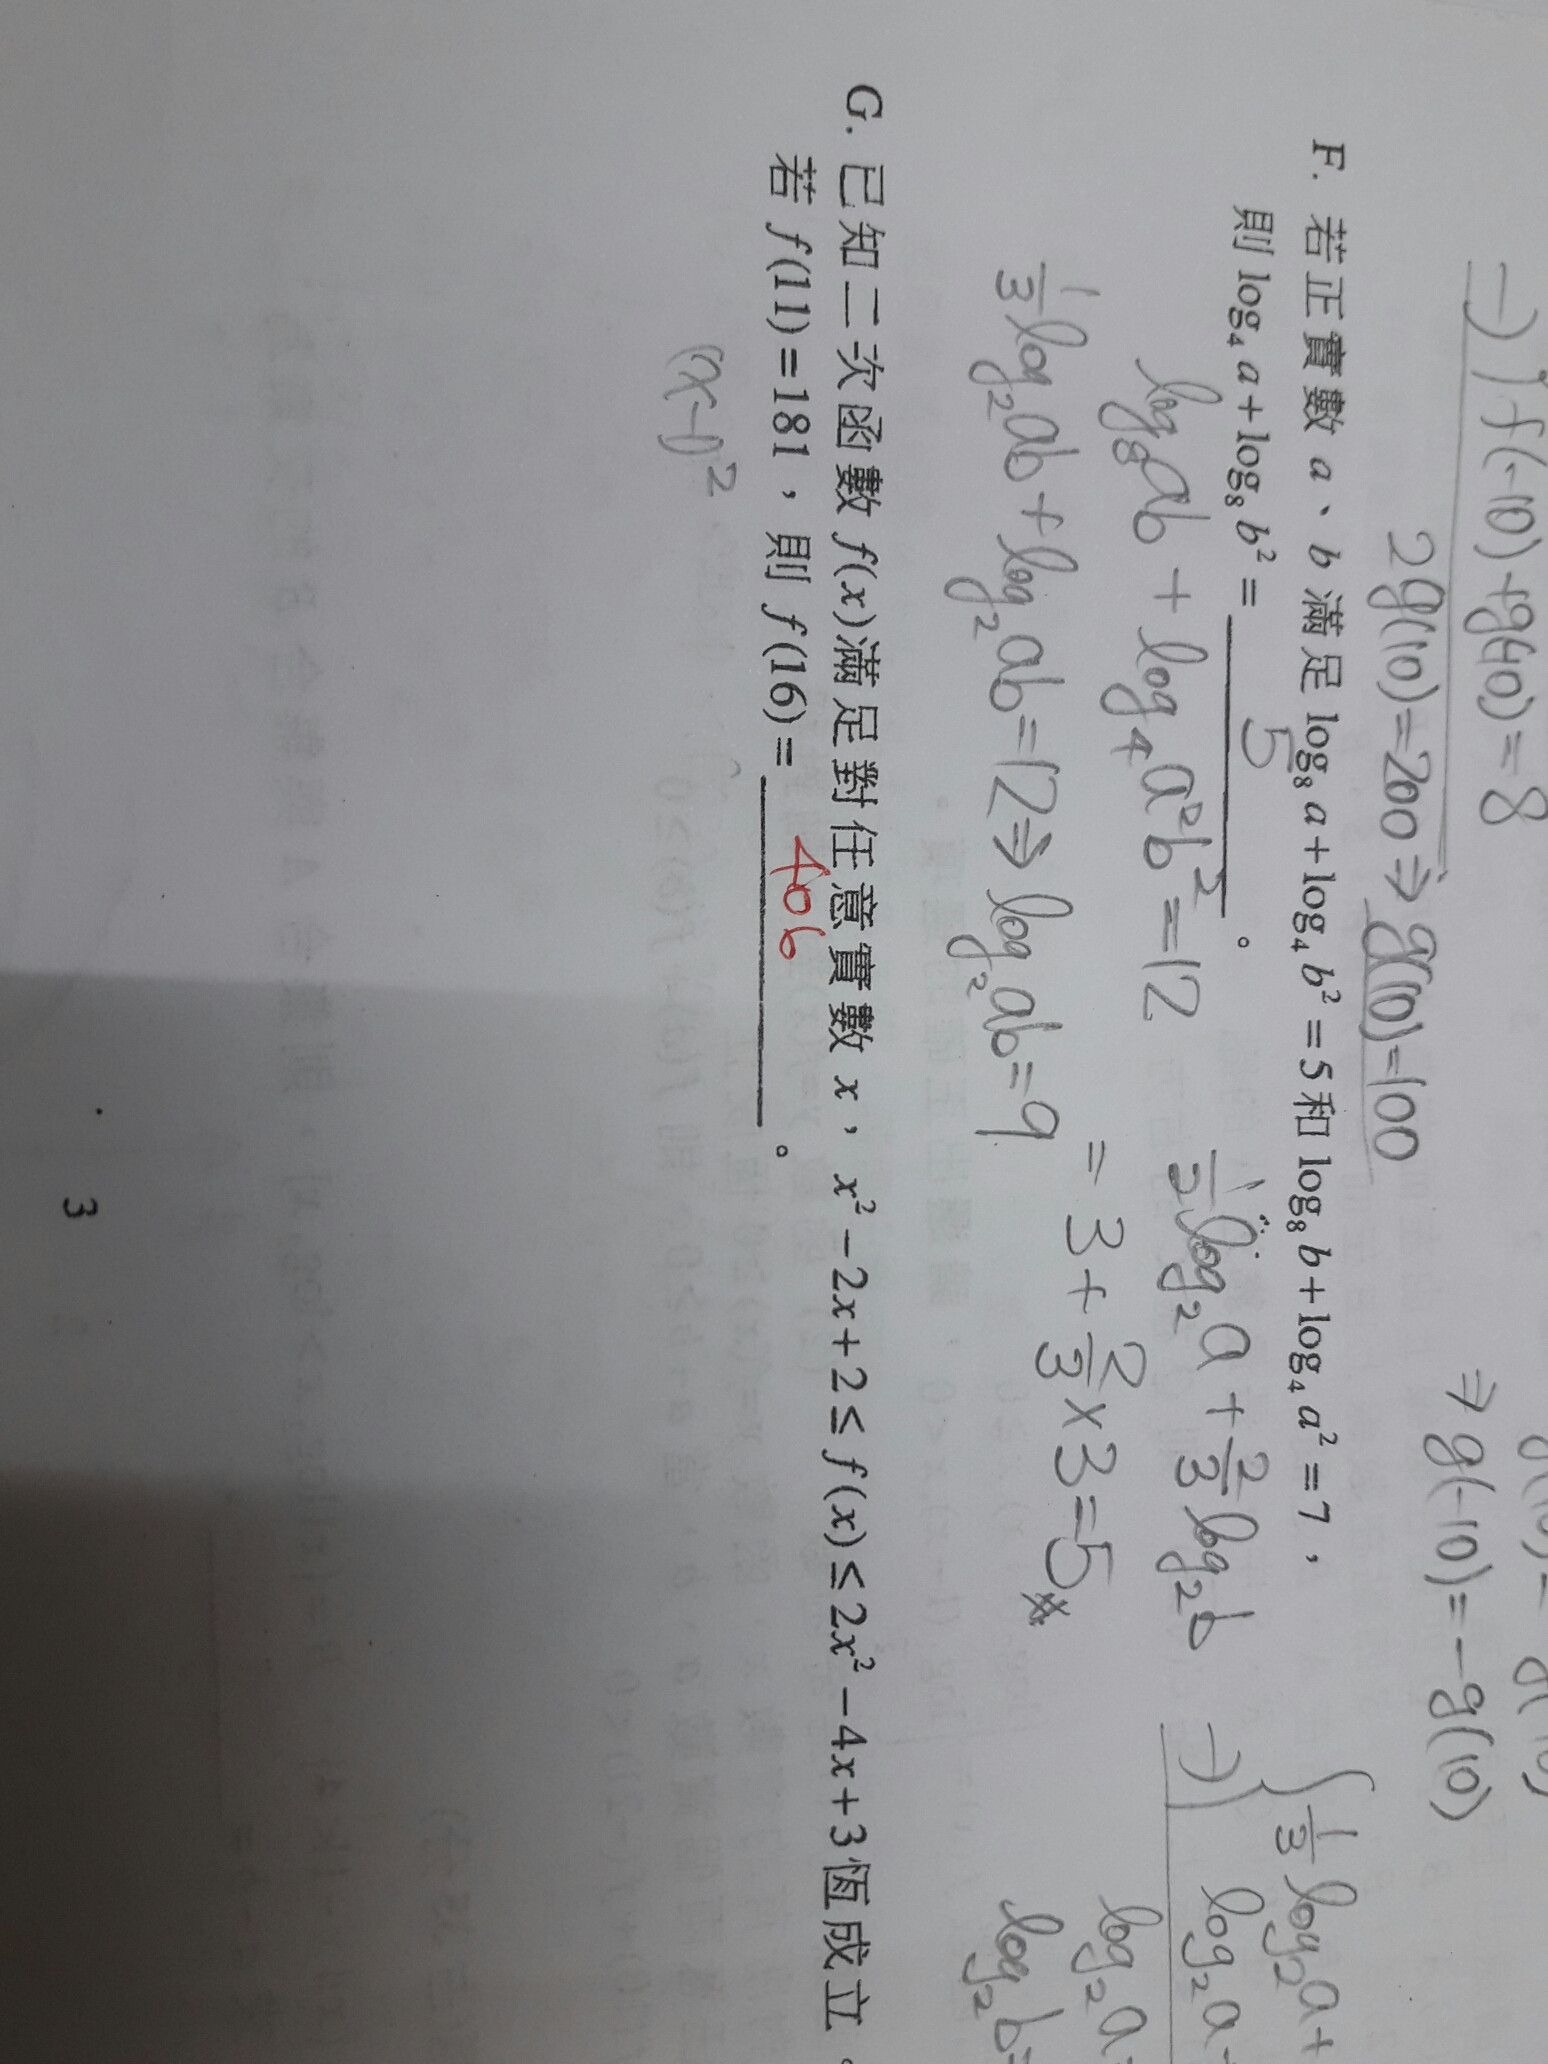 →) f(-10)+g(40)=8
2g(10)=200⇒g(10)=100
⇒g(-10)=-g(10)
F. 若正實數 a、b 滿足 log₈a+log₄b²=5 和 log₈b+log₄a²=7，
則 log₄a+log₈b²= 5 。
log₈ab+log₄a²b²=12
1/3 log₂ab+log₂ab=12⇒log₂ab=9
1/2 log₂a+2/3 log₂b
=3+2/3×3=5
{1/3 log₂a+
log₂a
log₂a
log₂b=
G. 已知二次函數 f(x) 滿足對任意實數 x，x²-2x+2≤f(x)≤2x²-4x+3 恆成立。
若 f(11)=181，則 f(16)= 406 。
(x-1)²
3